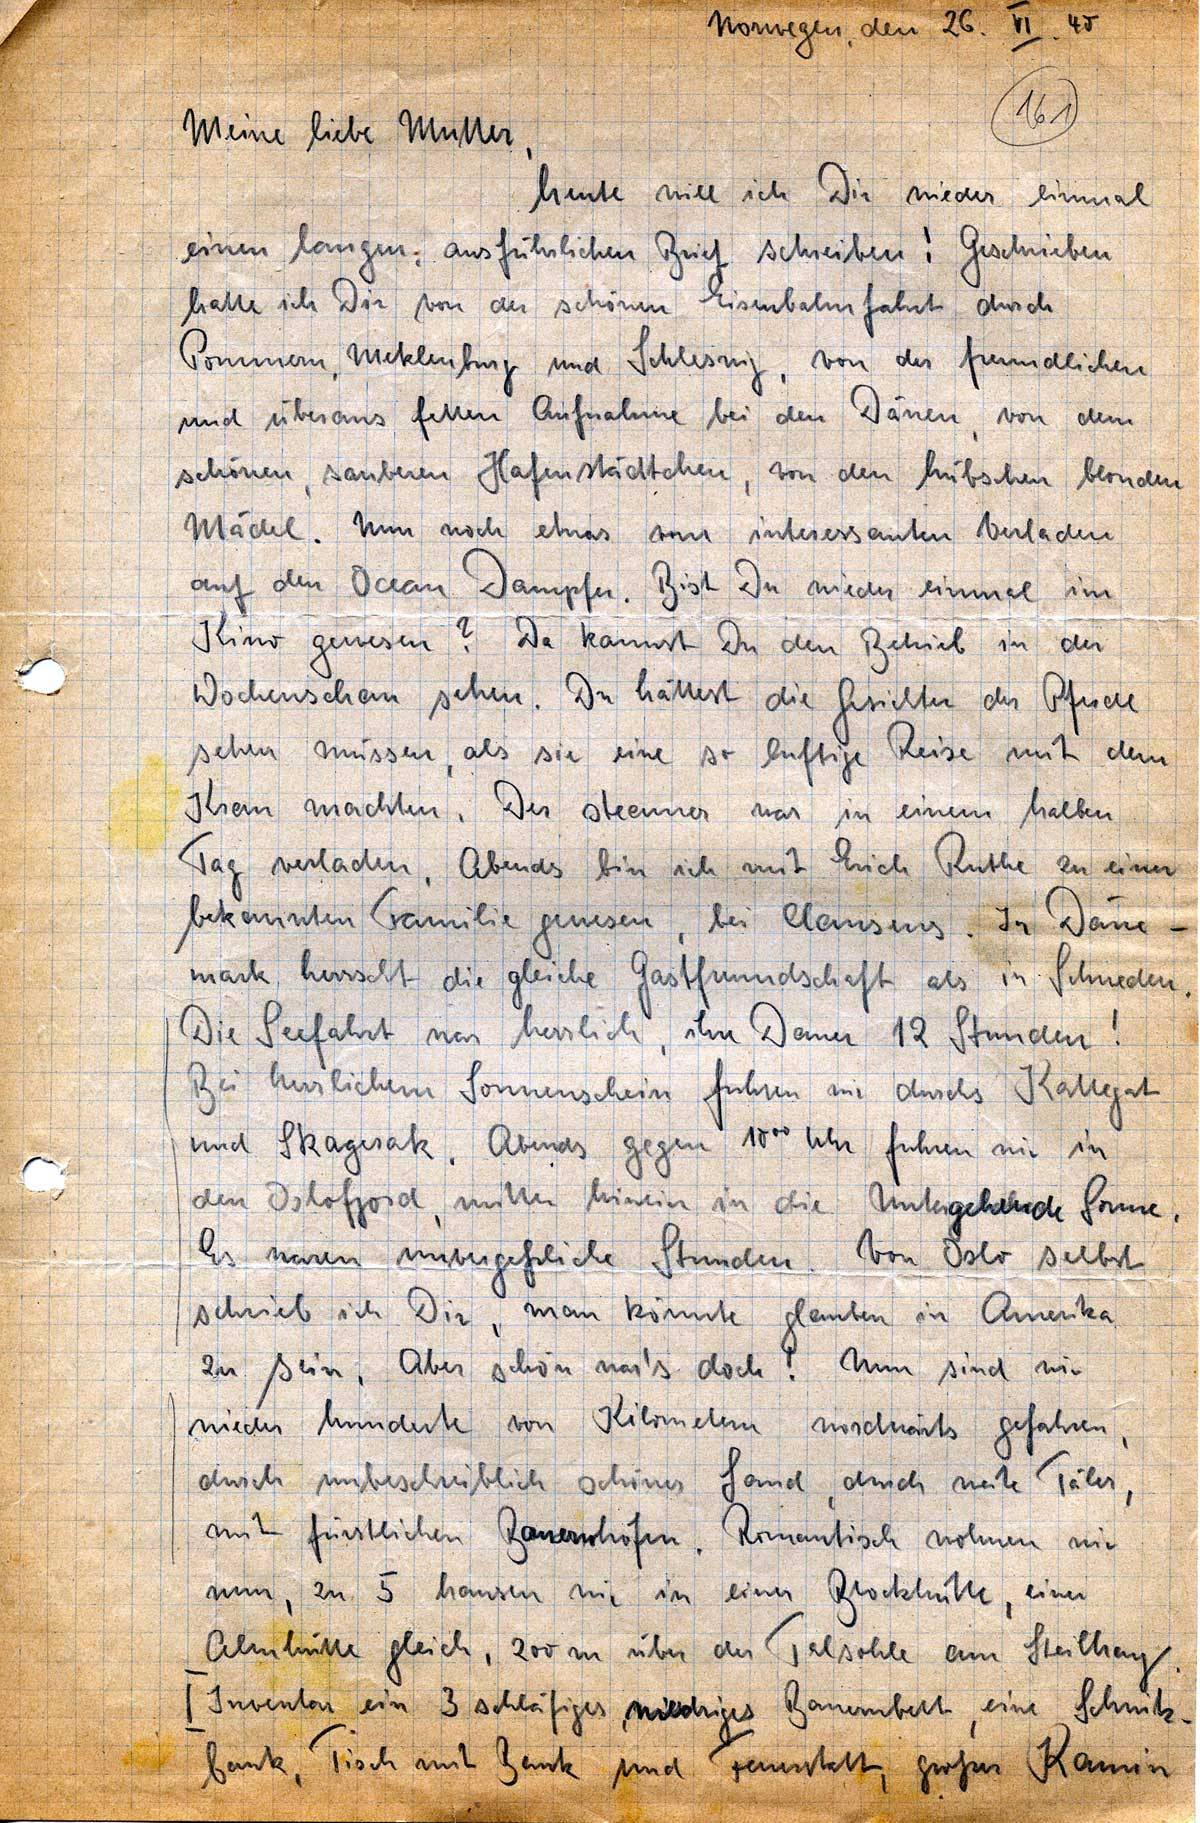 Norwegen, den 26. VI. 40
161
Meine liebe Mutter,
heute will ich Dir wieder einmal
einen langen, ausführlichen Brief schreiben! Geschrieben
hatte ich Dir von der schönen Eisenbahnfahrt durch
Pommern, Meklenburg und Schleswig, von der freundlichen
und überaus fetten Aufnahme bei den Dänen, von dem
schönen, sauberen Hafenstädtchen, von den hübschen blonden
Mädel. Nun noch etwas vom interessanten Verladen
auf den Ocean Dampfer. Bist Du wieder einmal im
Kino gewesen? Da kannst Du den Betrieb in der
Wochenschau sehen. Du hättest die Gesichter der Pferde
sehen müssen, als sie eine so luftige Reise mit dem
Kran machten. Der steamer war in einem halben
Tag verladen. Abends bin ich mit Erich Ruthe zu einer
bekannten Familie gewesen, bei Clausens. In Däne-
mark herrscht die gleiche Gastfreundschaft als in Schweden.
Die Seefahrt war herrlich, ihre Dauer 12 Stunden!
Bei herrlichem Sonnenschein fuhren wir durchs Kattegat
und Skagerak. Abends gegen 10⁰⁰ Uhr fuhren wir in
den Oslofjord, mitten hinein in die Untergehende Sonne.
Es waren unvergeßliche Stunden. Von Oslo selbst
schrieb ich Dir, man könnte glauben in Amerika
zu sein. Aber schön war's doch! Nun sind wir
wieder hunderte von Kilometern nordwärts gefahren,
durch unbeschreiblich schönes Land, durch weite Täler,
mit fürstlichen Bauernhöfen. Romantisch wohnen wir
nun, zu 5 hausen wir in einer Blockhütte, einer
Almhütte gleich, 200 m über der Talsohle am Steilhang.
Inventar ein 3 schläfiges, niedriges Bauernbett, eine Schnitz-
bank, Tisch mit Bank und Feuerstatt, großer Kamin